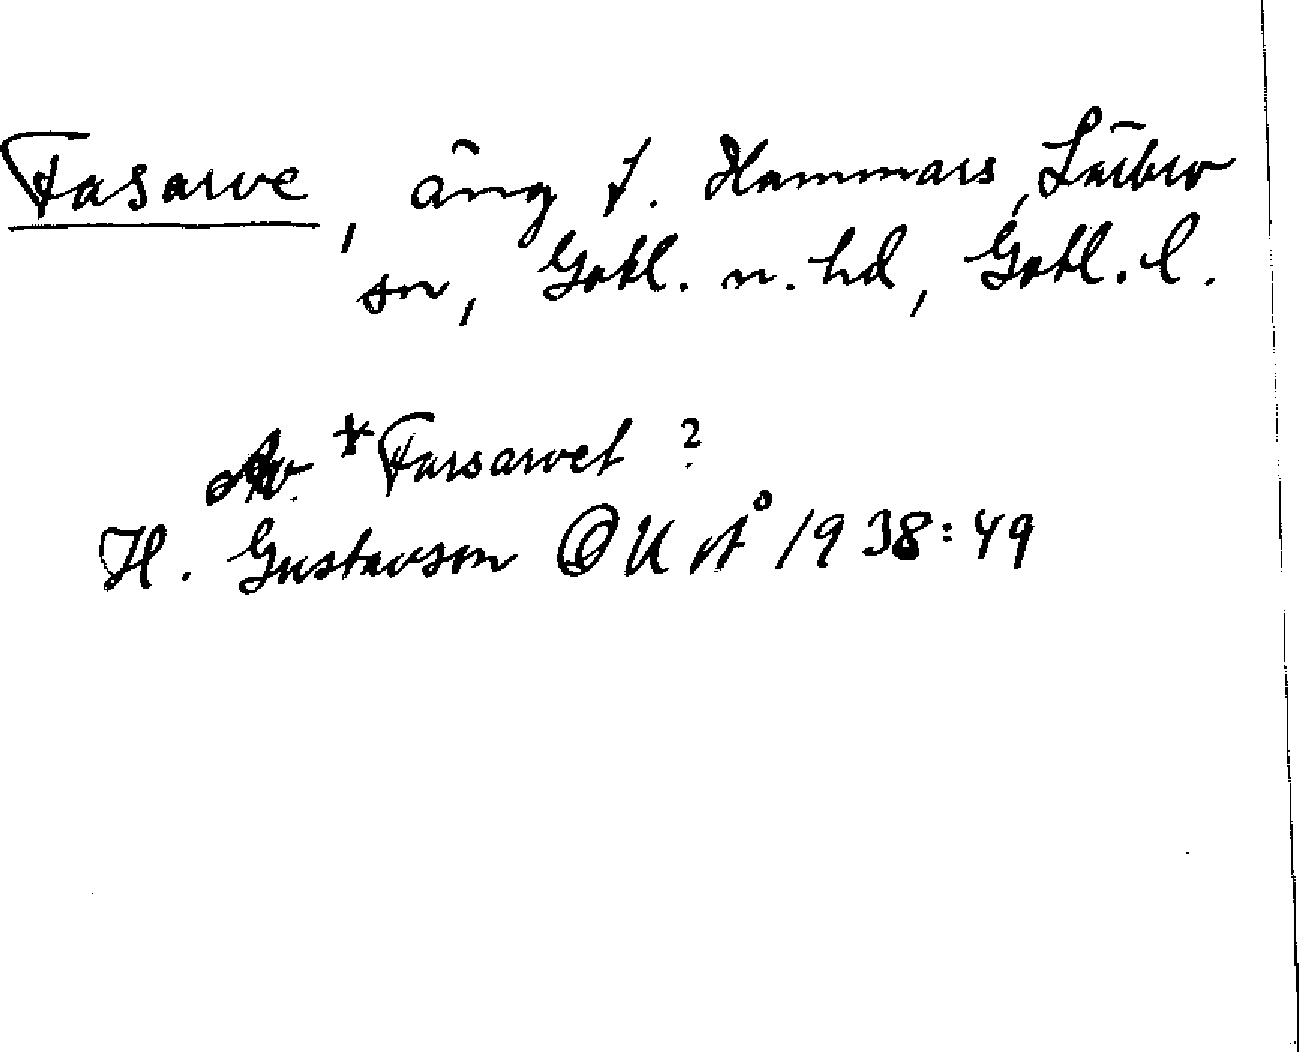 Fasarve, äng t. Hammars, Lärbro
sn, Gotl. n. hd, Gotl. l.
Av *Farsarvet ?
H. Gustavson OUÅ 1938:49